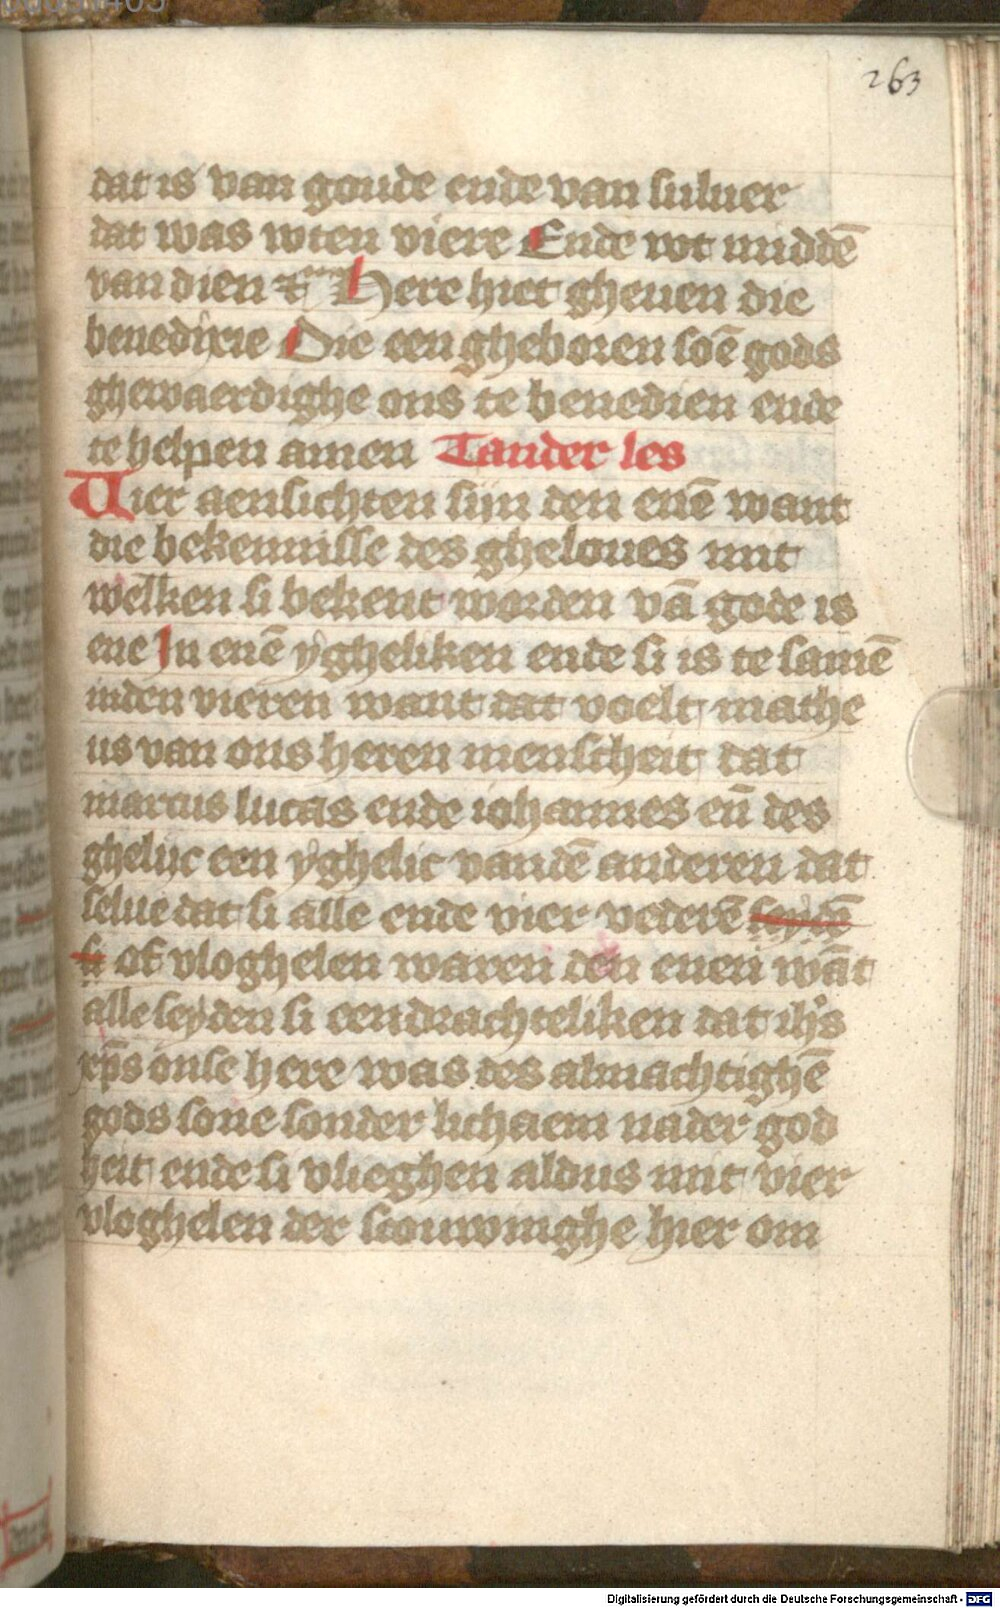 263
dat is van goude ende van suluer
dat was wten viere Ende wt middē
van dien Here hiet gheuen die
benedixie Die een gheboren soē gods
ghewaerdighe ons te benedien ende
te helpen amen Tander les
Uier aensichten sijn den enē want
die bekennisse des gheloues mit
welken si bekent worden vā gode is
ene In enē ygheliken ende si is te samē
inden vieren want dat voelt mathe
us van ons heren menscheit dat
marcus lucas ende iohannes eñ des
ghelijc een yghelic vandē anderen dat
selue dat si alle ende vier vederē seydē
si of vloghelen waren den enen wāt
alle seyden si eendrachteliken dat ihs
xps onse here was des almachtighē
gods sone sonder lichaem nader god
heit ende si vlieghen aldus mit vier
vloghelen der scouwinghe hier om
Digitalisierung gefördert durch die Deutsche Forschungsgemeinschaft - DFG